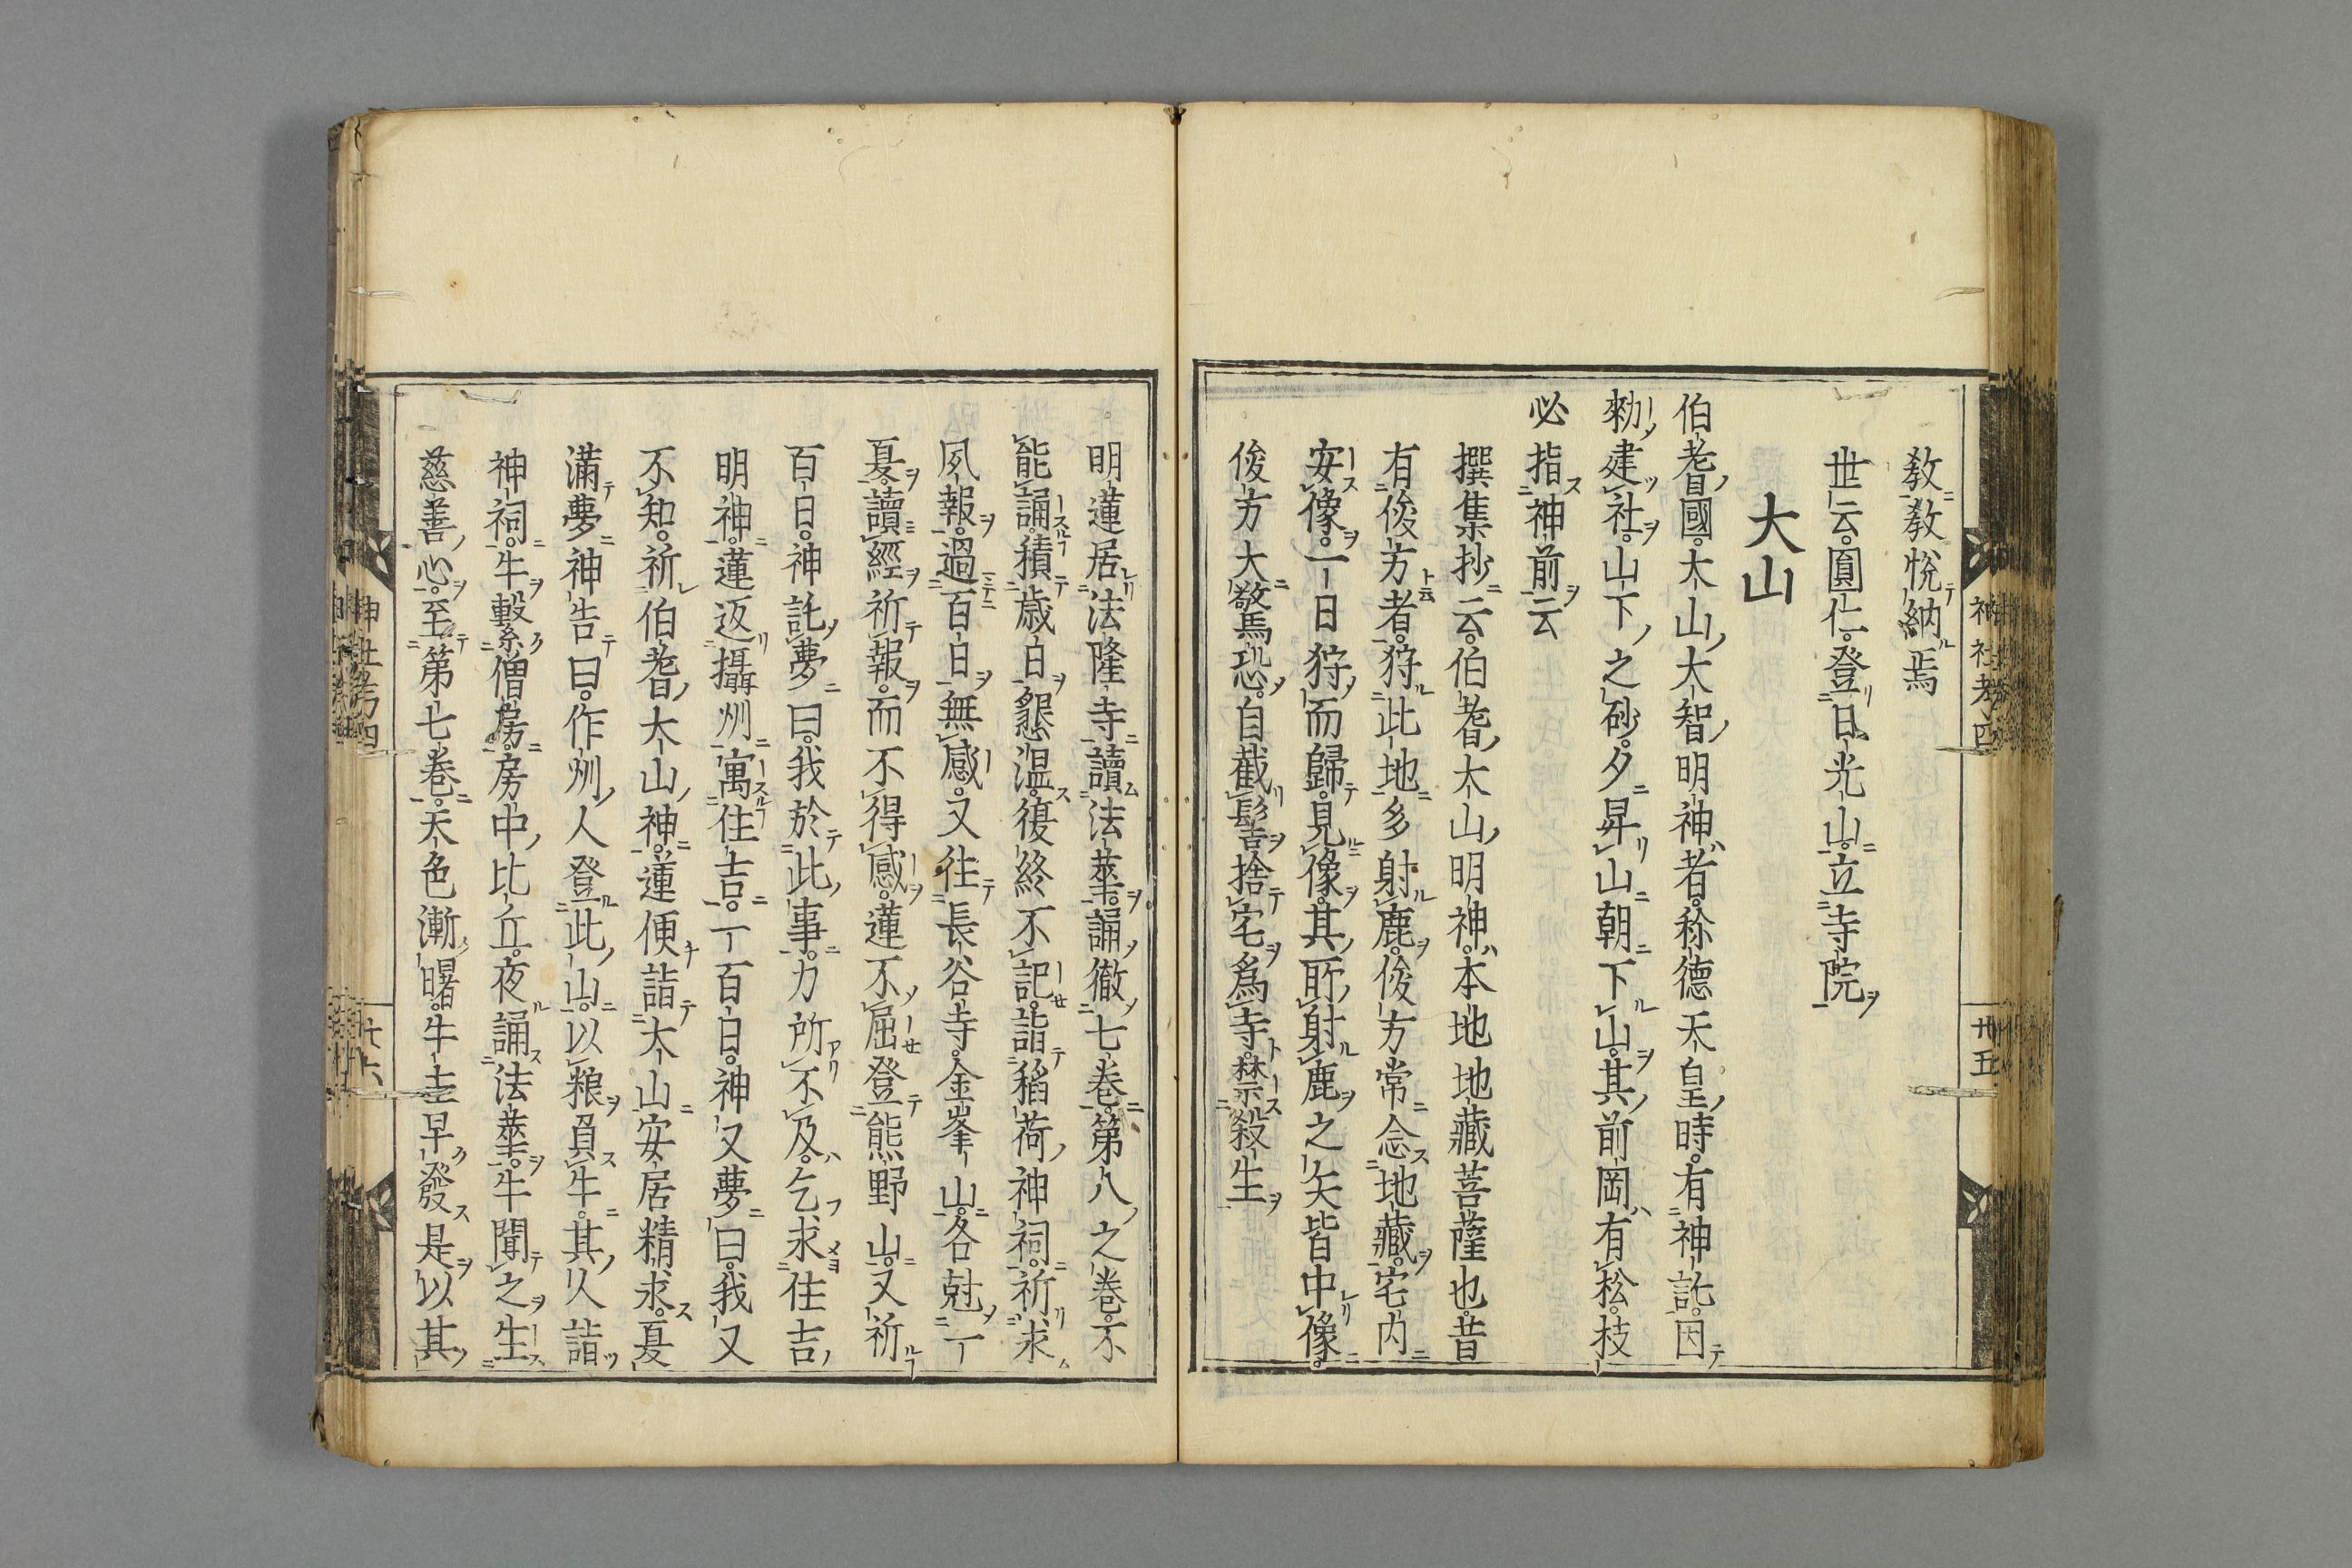 教教悅納焉
世云圓仁登日光山立寺院
大山
伯耆國大山大智明神者称德天皇時有神託因
勑建社山下之砂夕昇山朝下山其前岡有松枝
必指神前云
撰集抄云伯耆大山明神本地地藏菩薩也昔
有俊方者狩此地多射鹿俊方常念地藏宅内
安像一日狩而歸見像其所射鹿之矢皆中像
俊方大驚恐自截髻捨宅爲寺禁殺生
神社考四
卅五
明蓮居法隆寺讀法華誦徹七卷第八之卷不
能誦積歲自懇温復終不記詣稻荷神祠祈求
夙報過百日無感又往長谷寺金峯山各尅一
夏讀經祈報而不得感蓮不屈登熊野山又祈
百日神託夢曰我於此事力所不及乞求住吉
明神蓮返攝州寓住吉一百日神又夢曰我又
不知祈伯耆大山神蓮便詣大山安居精求夏
滿夢神告曰作州人登此山以粮負牛其人詣
神祠牛繫僧房房中比丘夜誦法華牛聞之生
慈善心至第七卷天色漸曙牛主早發是以其
神社考四
六